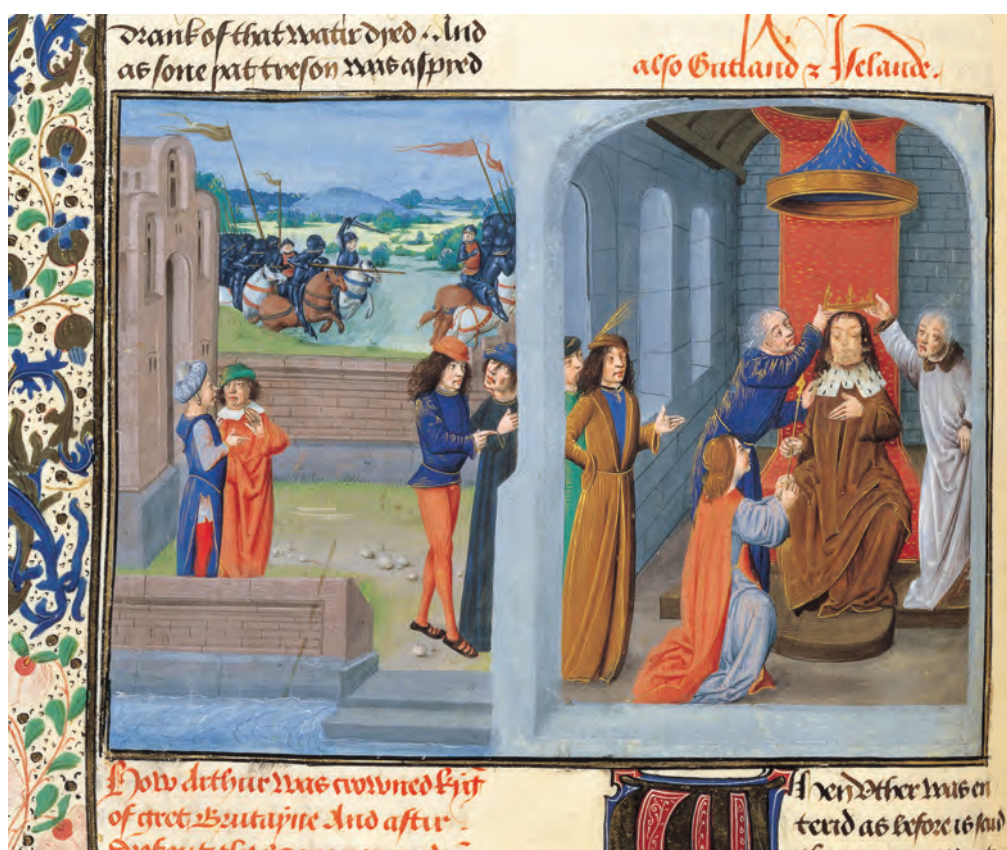 Drank of that watir dyed . And
as sone þat treson was aspyed
also Gutland ⁊ Iselande.
How Arthur was crowned kyng
of gret Brutayne And aftir
When Vther was en
terid as before is seid